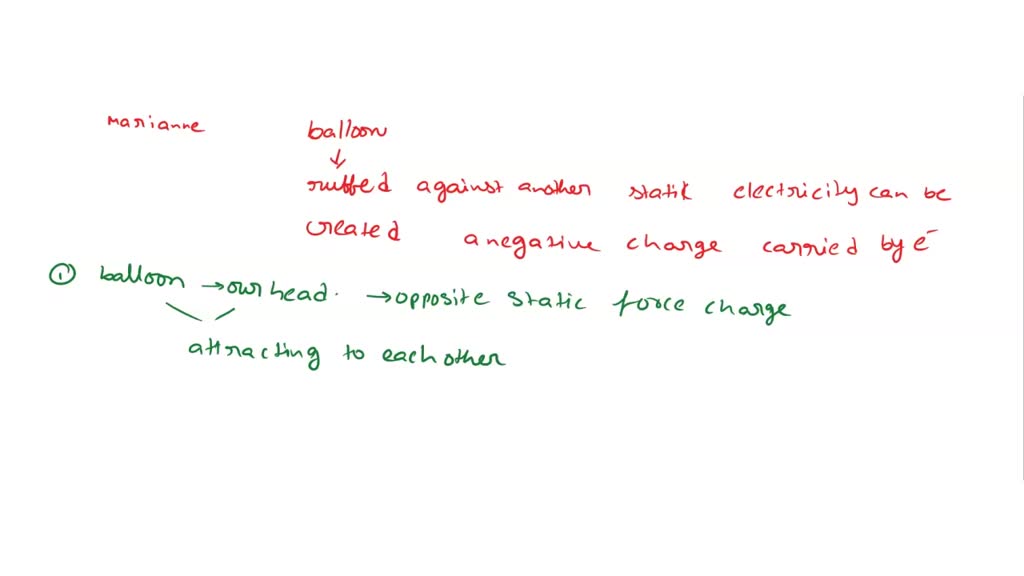 Marianne balloon
↓
rubbed against another static electricity can be
created a negative charge carried by e⁻
① balloon → our head. → opposite static force charge
attracting to each other